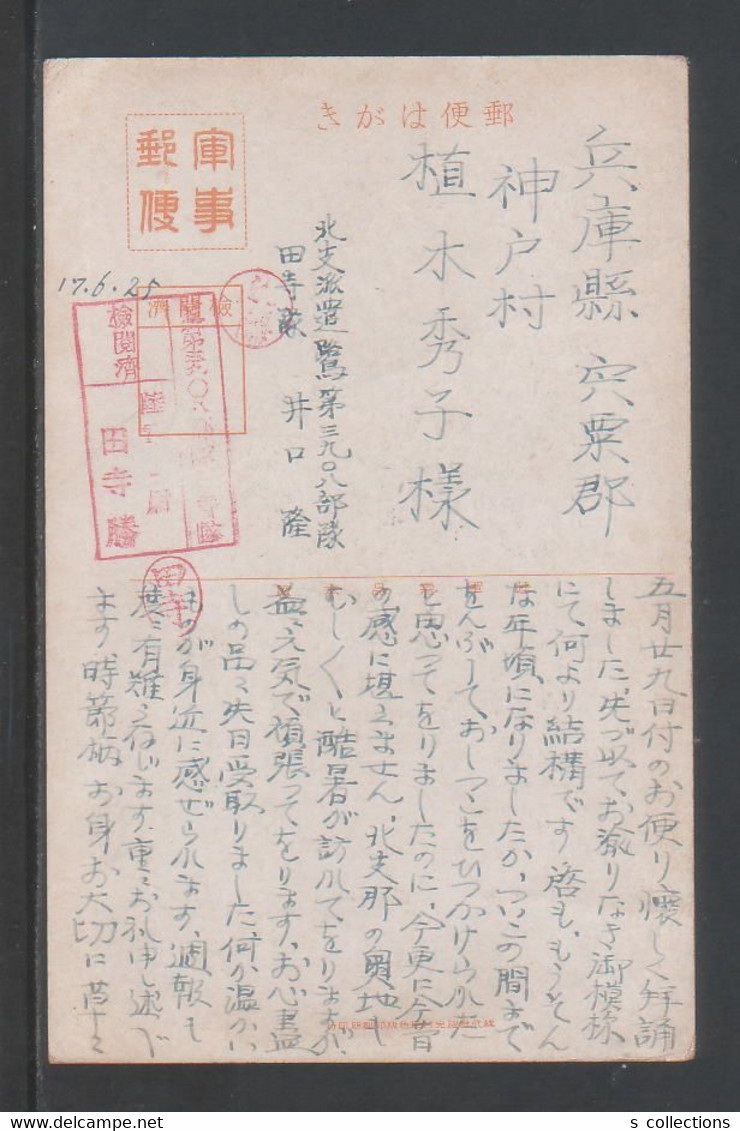 郵便はがき
軍事
郵便
兵庫縣宍粟郡
神戸村
植木秀子様
北支派遣鷺第三九〇八部隊
田寺隊 井口 隆
17.6.25
檢閲濟
檢閲濟
田寺勝
田寺
五月廿九日付のお便り懐しく拝誦
しました、先づ以てお渝りなき御模様
にて何より結構です 啓も、もうそん
な年頃になりましたか、ついこの間まで
をんぶして、おしつこをひつかけられた
と思つてをりましたのに、今更に今昔
の感に堪えません、北支那の奥地も
むし〱と酷暑が訪れてをりますが、
益々元気で頑張つてをります、お心盡
しの品々先日受取りました、何か温かい
ものが身近に感ぜられます、週報も
度々有難く存じます、重々お礼申し述べ
ます、時節柄お身お大切に 草々
s collections